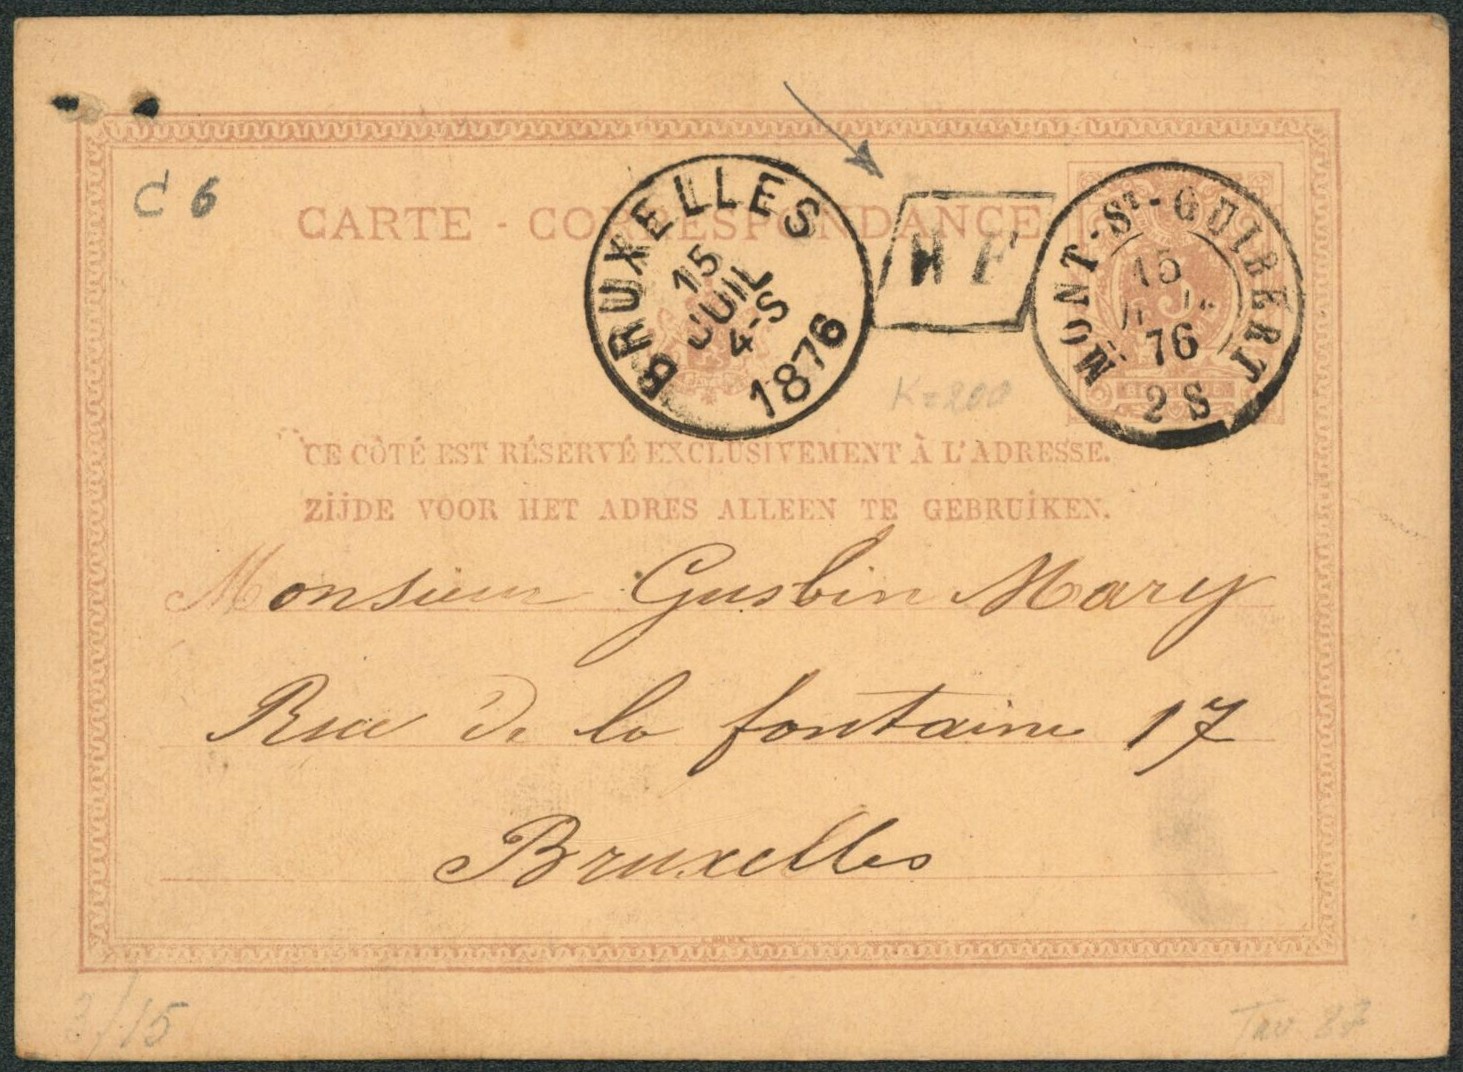 C 6
CARTE - CORRESPONDANCE
BRUXELLES
15
JUIL
4-S
1876
H F
MONT-ST-GUIBERT
15
76
2 S
K=200
CE CÔTÉ EST RÉSERVÉ EXCLUSIVEMENT À L'ADRESSE.
ZIJDE VOOR HET ADRES ALLEEN TE GEBRUIKEN.
Monsieur Gusbin Mary
Rue De la fontaine 17
Bruxelles
3/15
87